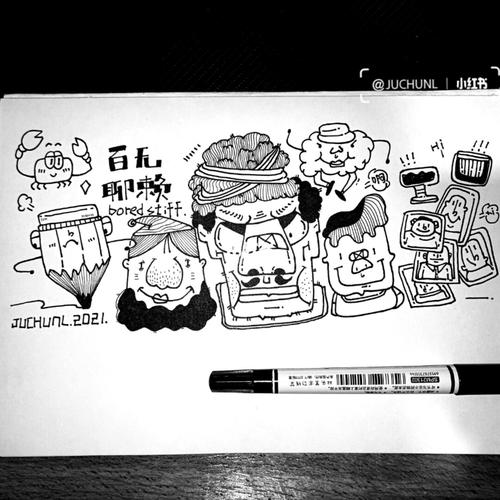 @JUCHUNL | 小红书
Hi
百无
聊赖
bored stiff.
JUCHUNL.2021.